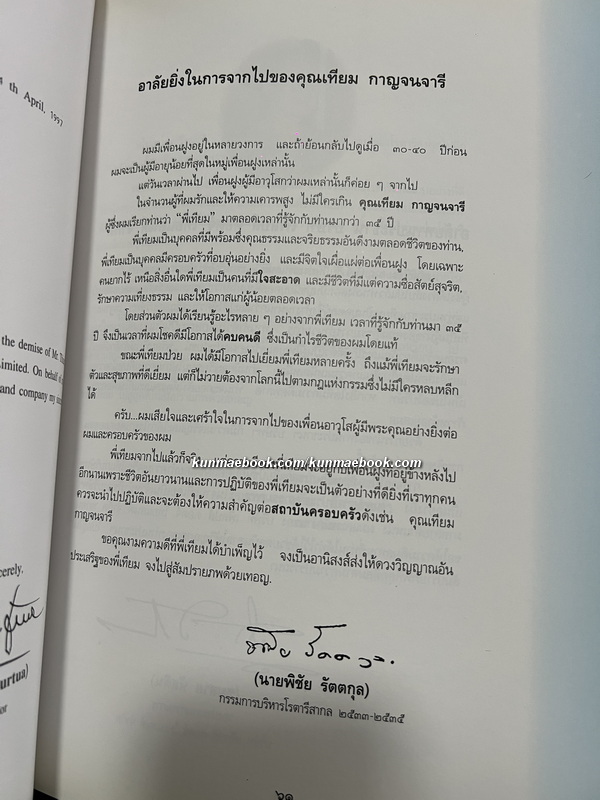 th April, 1997
the demise of Mr.
Limited. On behalf
and company my
cerely.
urtua)
or
อาลัยยิ่งในการจากไปของคุณเทียม กาญจนจารี
ผมมีเพื่อนฝูงอยู่ในหลายวงการ และถ้าย้อนกลับไปดูเมื่อ ๓๐-๔๐ ปีก่อน
ผมจะเป็นผู้มีอายุน้อยที่สุดในหมู่เพื่อนฝูงเหล่านั้น
แต่วันเวลาผ่านไป เพื่อนฝูงผู้มีอาวุโสกว่าผมเหล่านั้นก็ค่อย ๆ จากไป
ในจำนวนผู้ที่ผมรักและให้ความเคารพสูง ไม่มีใครเกิน คุณเทียม กาญจนจารี
ผู้ซึ่งผมเรียกท่านว่า "พี่เทียม" มาตลอดเวลาที่รู้จักกับท่านมากว่า ๓๕ ปี
พี่เทียมเป็นบุคคลที่มีพร้อมซึ่งคุณธรรมและจริยธรรมอันดีงามตลอดชีวิตของท่าน.
พี่เทียมเป็นบุคคลมีครอบครัวที่อบอุ่นอย่างยิ่ง และมีจิตใจเผื่อแผ่ต่อเพื่อนฝูง โดยเฉพาะ
คนยากไร้ เหนือสิ่งอื่นใดพี่เทียมเป็นคนที่มีใจสะอาด และมีชีวิตที่มีแต่ความซื่อสัตย์สุจริต,
รักษาความเที่ยงธรรม และให้โอกาสแก่ผู้น้อยตลอดเวลา
โดยส่วนตัวผมได้เรียนรู้อะไรหลาย ๆ อย่างจากพี่เทียม เวลาที่รู้จักกับท่านมา ๓๕
ปี จึงเป็นเวลาที่ผมโชคดีมีโอกาสได้คบคนดี ซึ่งเป็นกำไรชีวิตของผมโดยแท้
ขณะพี่เทียมป่วย ผมได้มีโอกาสไปเยี่ยมพี่เทียมหลายครั้ง ถึงแม้พี่เทียมจะรักษา
ตัวและสุขภาพที่ดีเยี่ยม แต่ก็ไม่วายต้องจากโลกนี้ไปตามกฎแห่งกรรมซึ่งไม่มีใครหลบหลีก
ได้
ครับ...ผมเสียใจและเศร้าใจในการจากไปของเพื่อนอาวุโสผู้มีพระคุณอย่างยิ่งต่อ
ผมและครอบครัวของผม
พี่เทียมจากไปแล้วก็จริง จะอยู่กับเพื่อนฝูงที่อยู่ข้างหลังไป
kunmaebook.com/kunmaebook.com
อีกนานเพราะชีวิตอันยาวนานและการปฏิบัติของพี่เทียมจะเป็นตัวอย่างที่ดียิ่งที่เราทุกคน
ควรจะนำไปปฏิบัติและจะต้องให้ความสำคัญต่อสถาบันครอบครัวดังเช่น คุณเทียม
กาญจนจารี
ขอคุณงามความดีที่พี่เทียมได้บำเพ็ญไว้ จงเป็นอานิสงส์ส่งให้ดวงวิญญาณอัน
ประเสริฐของพี่เทียม จงไปสู่สัมปรายภพด้วยเทอญ.
(นายพิชัย รัตตกุล)
กรรมการบริหารโรตารีสากล ๒๕๓๓-๒๕๓๕
๖๑